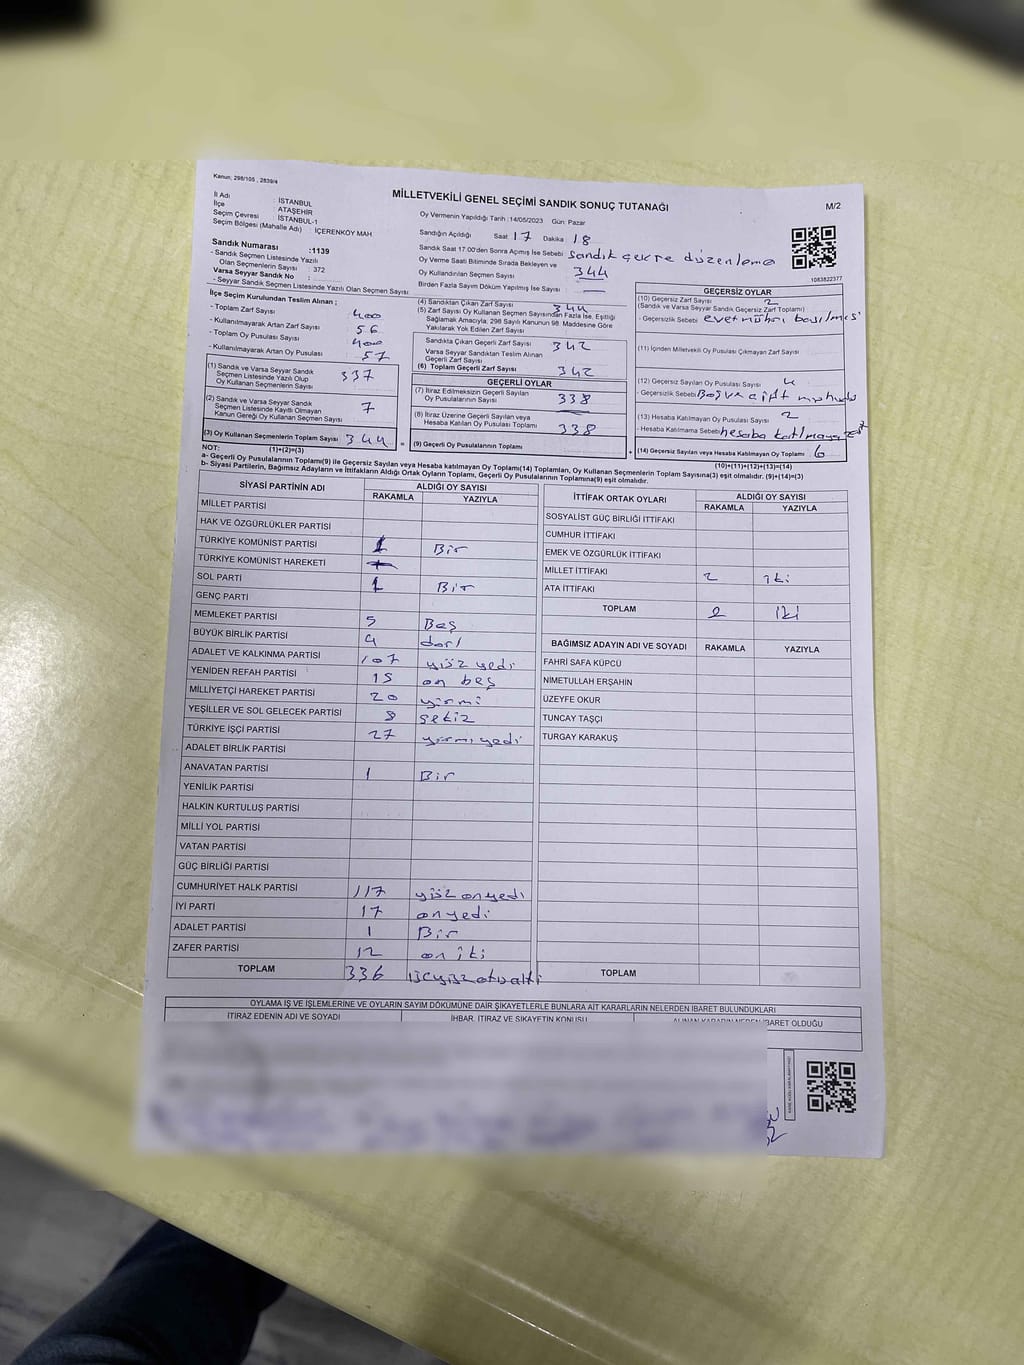 Kanun; 298/105 , 2839/4
MİLLETVEKİLİ GENEL SEÇİMİ SANDIK SONUÇ TUTANAĞI
M/2
İl Adı : İSTANBUL
İlçe : ATAŞEHİR
Seçim Çevresi : İSTANBUL-1
Seçim Bölgesi (Mahalle Adı) : İÇERENKÖY MAH.
Oy Vermenin Yapıldığı Tarih :14/05/2023 Gün: Pazar
Sandığın Açıldığı Saat 17 Dakika 18
Sandık Saat 17:00'den Sonra Açılmış İse Sebebi Sandık çevre düzenleme
Oy Verme Saati Bitiminde Sırada Bekleyen ve
Oy Kullandırılan Seçmen Sayısı 344
Birden Fazla Sayım Döküm Yapılmış İse Sayısı —
1083822377
Sandık Numarası :1139
- Sandık Seçmen Listesinde Yazılı
Olan Seçmenlerin Sayısı : 372
Varsa Seyyar Sandık No :
- Seyyar Sandık Seçmen Listesinde Yazılı Olan Seçmen Sayısı:
İlçe Seçim Kurulundan Teslim Alınan ;
- Toplam Zarf Sayısı 400
- Kullanılmayarak Artan Zarf Sayısı 56
- Toplam Oy Pusulası Sayısı 400
- Kullanılmayarak Artan Oy Pusulası 57
(1) Sandık ve Varsa Seyyar Sandık
Seçmen Listesinde Yazılı Olup
Oy Kullanan Seçmenlerin Sayısı 337
(2) Sandık ve Varsa Seyyar Sandık
Seçmen Listesinde Kayıtlı Olmayan
Kanun Gereği Oy Kullanan Seçmen Sayısı 7
(3) Oy Kullanan Seçmenlerin Toplam Sayısı 344
(4) Sandıktan Çıkan Zarf Sayısı 344
(5) Zarf Sayısı Oy Kullanan Seçmen Sayısından Fazla İse, Eşitliği
Sağlamak Amacıyla; 298 Sayılı Kanunun 98. Maddesine Göre
Yakılarak Yok Edilen Zarf Sayısı
Sandıkta Çıkan Geçerli Zarf Sayısı 342
Varsa Seyyar Sandıktan Teslim Alınan
Geçerli Zarf Sayısı
(6) Toplam Geçerli Zarf Sayısı 342
GEÇERLİ OYLAR
(7) İtiraz Edilmeksizin Geçerli Sayılan
Oy Pusulalarının Sayısı 338
(8) İtiraz Üzerine Geçerli Sayılan veya
Hesaba Katılan Oy Pusulası Toplamı 338
= (9) Geçerli Oy Pusulalarının Toplamı +
GEÇERSİZ OYLAR
(10) Geçersiz Zarf Sayısı 2
(Sandık ve Varsa Seyyar Sandık Geçersiz Zarf Toplamı)
- Geçersizlik Sebebi evet mührü basılmış
(11) İçinden Milletvekili Oy Pusulası Çıkmayan Zarf Sayısı
(12) Geçersiz Sayılan Oy Pusulası Sayısı 4
- Geçersizlik Sebebi Boş ve çift
(13) Hesaba Katılmayan Oy Pusulası Sayısı 2
- Hesaba Katılmama Sebebi hesaba
(14) Geçersiz Sayılan veya Hesaba Katılmayan Oy Toplamı 6
NOT: (1)+(2)=(3) (10)+(11)+(12)+(13)=(14)
a- Geçerli Oy Pusulalarının Toplamı(9) ile Geçersiz Sayılan veya Hesaba katılmayan Oy Toplamı(14) Toplamları, Oy Kullanan Seçmenlerin Toplam Sayısına(3) eşit olmalıdır. (9)+(14)=(3)
b- Siyasi Partilerin, Bağımsız Adayların ve İttifakların Aldığı Ortak Oyların Toplamı, Geçerli Oy Pusulalarının Toplamına(9) eşit olmalıdır.
SİYASİ PARTİNİN ADI ALDIĞI OY SAYISI
RAKAMLA YAZIYLA
MİLLET PARTİSİ
HAK VE ÖZGÜRLÜKLER PARTİSİ
TÜRKİYE KOMÜNİST PARTİSİ 1 Bir
TÜRKİYE KOMÜNİST HAREKETİ
SOL PARTİ 1 Bir
GENÇ PARTİ
MEMLEKET PARTİSİ 5 Beş
BÜYÜK BİRLİK PARTİSİ 4 dört
ADALET VE KALKINMA PARTİSİ 107 yüz yedi
YENİDEN REFAH PARTİSİ 15 on beş
MİLLİYETÇİ HAREKET PARTİSİ 20 yirmi
YEŞİLLER VE SOL GELECEK PARTİSİ 8 sekiz
TÜRKİYE İŞÇİ PARTİSİ 27 yirmi yedi
ADALET BİRLİK PARTİSİ
ANAVATAN PARTİSİ 1 Bir
YENİLİK PARTİSİ
HALKIN KURTULUŞ PARTİSİ
MİLLİ YOL PARTİSİ
VATAN PARTİSİ
GÜÇ BİRLİĞİ PARTİSİ
CUMHURİYET HALK PARTİSİ 117 yüz on yedi
İYİ PARTİ 17 on yedi
ADALET PARTİSİ 1 Bir
ZAFER PARTİSİ 12 on iki
TOPLAM 336 üçyüzotuzaltı
İTTİFAK ORTAK OYLARI ALDIĞI OY SAYISI
RAKAMLA YAZIYLA
SOSYALİST GÜÇ BİRLİĞİ İTTİFAKI
CUMHUR İTTİFAKI
EMEK VE ÖZGÜRLÜK İTTİFAKI
MİLLET İTTİFAKI 2 iki
ATA İTTİFAKI
TOPLAM 2 iki
BAĞIMSIZ ADAYIN ADI VE SOYADI RAKAMLA YAZIYLA
FAHRİ SAFA KÜPCÜ
NİMETULLAH ERŞAHİN
ÜZEYFE OKUR
TUNCAY TAŞÇI
TURGAY KARAKUŞ
TOPLAM
OYLAMA İŞ VE İŞLEMLERİNE VE OYLARIN SAYIM DÖKÜMÜNE DAİR ŞİKAYETLERLE BUNLARA AİT KARARLARIN NELERDEN İBARET BULUNDUKLARI
İTİRAZ EDENİN ADI VE SOYADI İHBAR, İTİRAZ VE ŞİKAYETİN KONUSU ALINAN KARARIN NEDEN İBARET OLDUĞU